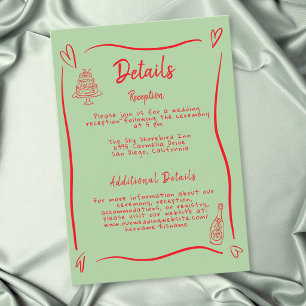 Details
Reception
Please join us for a wedding
reception following the ceremony
at 5 PM
The Sky Shorebird Inn
6395 Carmella Drive
San Diego, California
Additional Details
For more information about our
ceremony, reception,
accommodations, or registry,
please visit our website at:
www.ourweddingwebsite.com/
hername-hisname